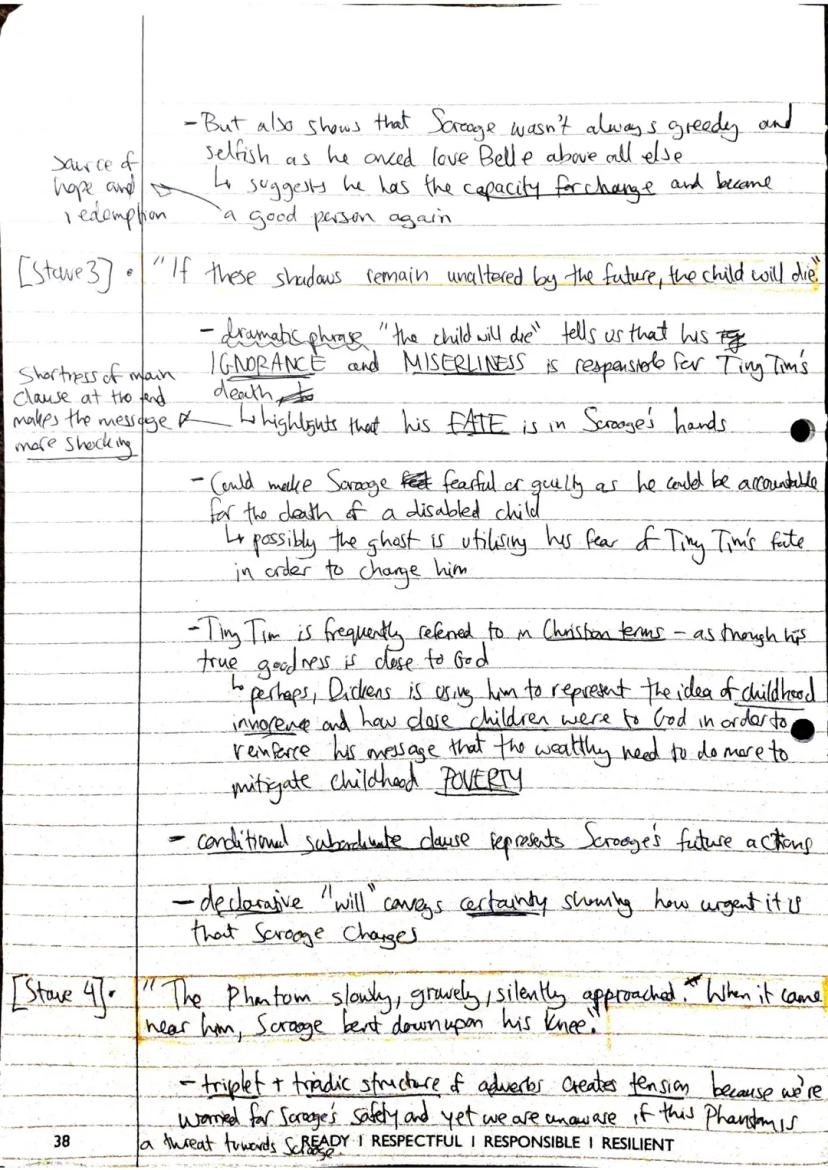 - But also shows that Scrooge wasn't always greedy and
selfish as he onced love Belle above all else
↳ suggests he has the capacity for change and became
a good person again
Source of
hope and
redemption
[Stave 3] • "If these shadows remain unaltered by the future, the child will die"
- dramatic phrase "the child will die" tells us that his
IGNORANCE and MISERLINESS is responsible for Tiny Tim's
death
↳ highlights that his FATE is in Scrooge's hands
Shortness of main
clause at the end
makes the message
more shocking
- Could make Scrooge fearful or guilty as he could be accountable
for the death of a disabled child
↳ possibly the ghost is utilising his fear of Tiny Tim's fate
in order to change him
- Tiny Tim is frequently referred to in Christian terms - as though his
true goodness is close to God
↳ perhaps, Dickens is using him to represent the idea of childhood
innocence and how close children were to God in order to
reinforce his message that the wealthy need to do more to
mitigate childhood POVERTY
- conditional subordinate clause represents Scrooge's future actions
- declarative "will" conveys certainty showing how urgent it is
that Scrooge changes
[Stave 4] • "The Phantom slowly, gravely, silently approached. When it came
near him, Scrooge bent down upon his knee."
- triplet + triadic structure of adverbs creates tension because we're
worried for Scrooge's safety and yet we are unaware if this Phantom is
a threat towards Scrooge.
38
READY I RESPECTFUL I RESPONSIBLE I RESILIENT